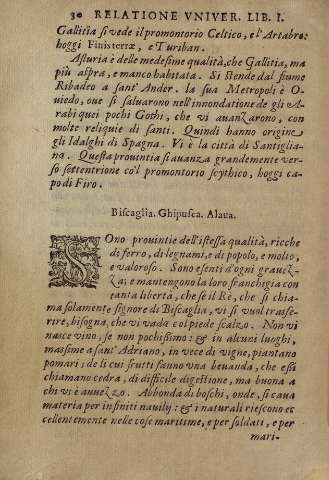 30 RELATIONE VNIVER. LIB. I.
Gallitia si vede il promontorio Celtico, e l'Artabro:
hoggi Finisterræ, e Turiban.
Asturia è delle medesime qualità, che Gallitia, ma
più aspra, e manco habitata. Si stende dal fiume
Ribadeo a sant' Ander. la sua Metropoli è O-
uiedo, oue si saluarono nell'innondatione de gli A-
rabi quei pochi Gothi, che vi auanzarono, con
molte reliquie di santi. Quindi hanno origine
gli Idalghi di Spagna. Vi è la città di Santiglia-
na. Questa prouintia si auanza grandemente ver-
so settentrione co'l promontorio scythico, hoggi ca-
po di Firo.
Biscaglia. Ghipusca. Alaua.
SOno prouintie dell'istessa qualità, ricche
di ferro, di legnami, e di popolo, e molto,
e valoroso. Sono esenti d'ogni grauez-
za; e mantengono la loro franchigia con
tanta libertà, che se il Rè, che si chia-
ma solamente signore di Biscaglia, vi si vuol trasfe-
rire, bisogna, che vi vada col piede scalzo. Non vi
nasce vino, se non pochissimo: & in alcuni luoghi,
massime a sant' Adriano, in vece di vigne, piantano
pomari; de li cui frutti fanno vna beuanda, che essi
chiamano cedra, di difficile digestione, ma buona a
chi vi è auuezzo. Abbonda di boschi, onde, si caua
materia per infiniti nauily: & i naturali riescono ec
cellentemente nelle cose maritime, e per soldati, e per
mari-